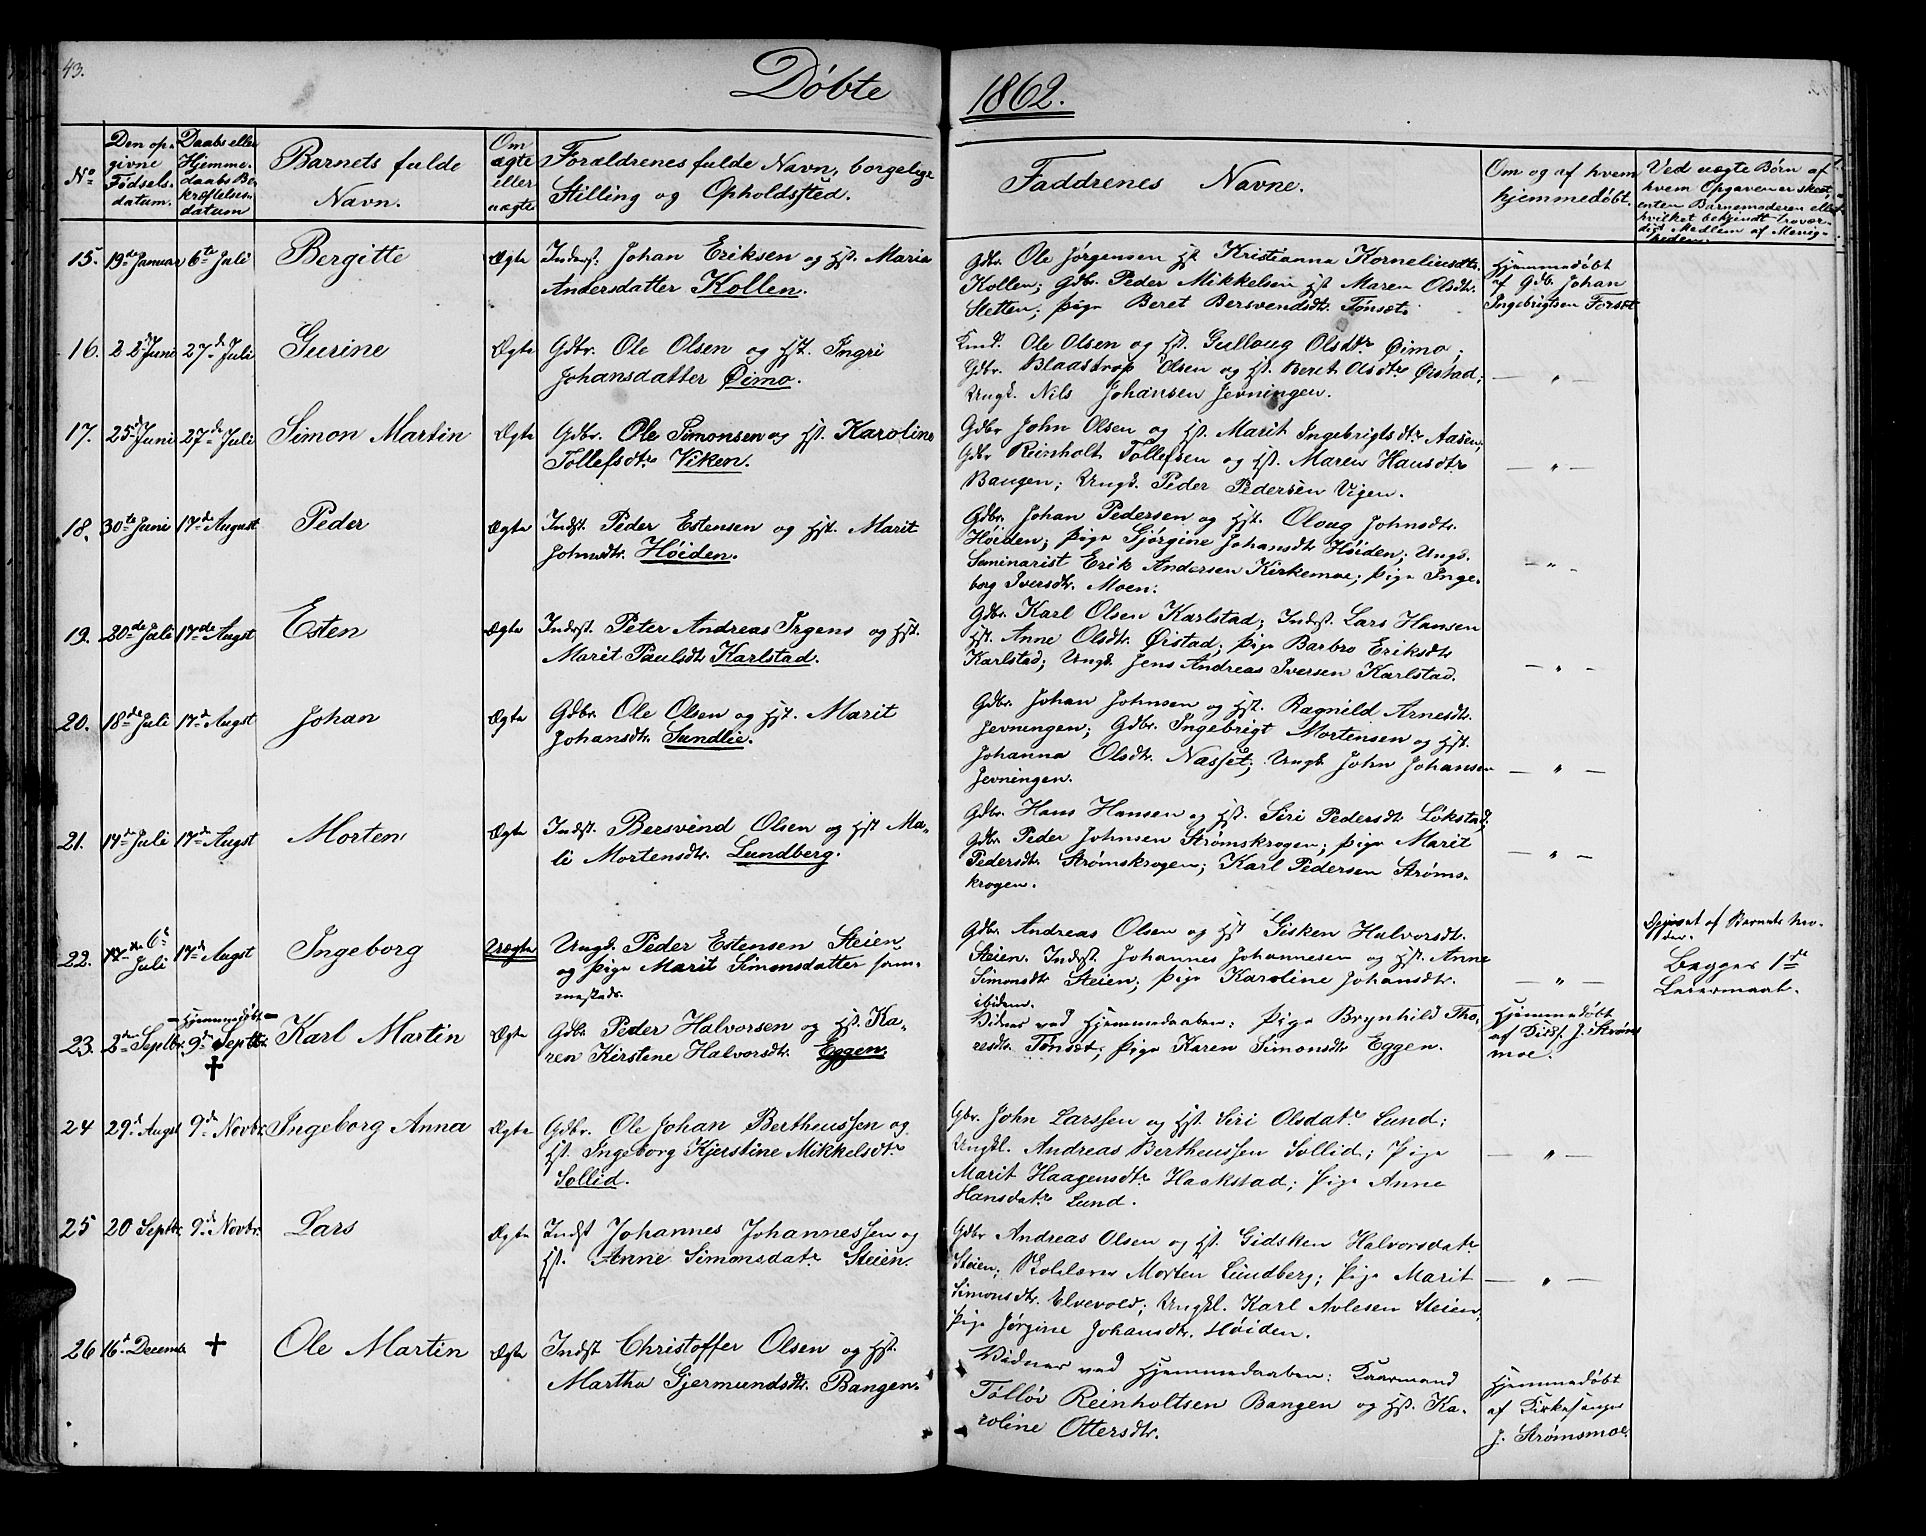 43.
Døbte 1862.
No
Den op-
givne
Fødsels-
datum.
Daabs eller
Hjemme-
daabs Be-
kræftelses-
datum
Barnets fulde
Navn.
Om
ægte
eller
uægte
Forældrenes fulde Navn, borgelige
Stilling og Opholdssted.
Faddrenes Navne.
Om og af hvem
hjemmedøbt.
Ved uægte Børn af
hvem Opgaven er skeet,
enten Barnemoderen eller
hvilket bekjendt trovær-
digt Medlem af Menig-
heden.
15. 19de Januar 6te Juli Bergitte Ægte Inderst. Johan Eriksen og Hst. Maria
Andersdatter Kollen.
Gdbr. Ole Jørgensen Hst Kristianna Korneliusdtr.
Kollen; Gdbr. Peder Mikkelsen Hst Maren Olsdtr.
Sletten; Pige Beret Bersvendsdtr. Tønset.
Hjemmedøbt
af Gdb. Johan
Ingebrigtsen Forset
16. 22de Juni 27de Juli Gurine Ægte Gdbr. Ole Olsen og Hst. Ingri
Johansdatter Øimo.
Ole Olsen og Hst. Gulloug Olsdtr Øimo;
Gdbr. Blaastrop Olsen og Hst. Beret Olsdtr Øistad;
Ungk. Nils Johansen Jevningen.
— " —
17. 25de Juni 27de Juli Simon Martin Ægte Gdbr. Ole Simonsen og Hst. Karoline
Tollefsdtr. Viken.
Gdbr John Olsen og Hst. Marit Ingebrigtsdtr Aasen;
Gdbr Reinholt Tollefsen og Hst. Maren Hansdtr
Bangen; Ungk. Peder Pedersen Vigen.
— " —
18. 30te Juni 17de August Peder Ægte Indst. Peder Estensen og Hst. Marit
Johnsdtr. Høiden.
Gdbr. Johan Pedersen og Hst. Oloug Johnsdtr.
Høiden; Pige Gjørgine Johansdtr Høiden; Ungk.
Seminarist Erik Andersen Kirkemoe; Pige Inge-
borg Iversdtr. Moen.
— " —
19. 20de Juli 17de Augst Esten Ægte Inderst. Peter Andreas Irgens og Hst.
Marit Paulsdtr Karlstad.
Gdbr. Karl Olsen Karlstad; Inderst. Lars Hansen
Hst. Anne Olsdtr. Øistad; Pige Barbro Eriksdtr
Karlstad; Ungk. Jens Andreas Iversen Karlstad.
— " —
20. 18de Juli 17de Augst Johan Ægte Gdbr. Ole Olsen og Hst. Marit
Johansdtr. Sundlie.
Gdbr. Johan Johnsen og Hst. Ragnild Arnesdtr.
Jevningen; Gdbr. Ingebrigt Mortensen og Hst.
Johanna Olsdtr. Næsset; Ungk. John Johansen
Jevningen.
— " —
21. 14de Juli 17de Augst Morten Ægte Indst. Bersvend Olsen og Hst Ma-
li Mortensdtr. Lundberg.
Gdbr. Hans Hansen og Hst. Siri Pedersdtr Løkstad;
Gdbr. Peder Johnsen Strømskrogen; Pige Marit
Pedersdtr. Strømskrogen; Karl Pedersen Strøms-
krogen.
— " —
22. 6te Juli 17de Augst Ingeborg Uægte Ungk. Peder Estensen Steien
og Pige Marit Simonsdatter sam-
mesteds.
Gdbr. Andreas Olsen og Hst Gisken Halvorsdtr.
Steien. Inderst. Johannes Johannesen og Hst. Anne
Simonsdtr Steien; Pige Karoline Johansdtr.
ibidem.
— " —
Opgivet af Barnets Mo-
der.
Begges 1ste
Leiermaal.
23. 2den Septbr. Hjemmedøbt 9de Septbr. † Karl Martin Ægte Gdbr. Peder Halvorsen og Hst. Ka-
ren Kirstene Halvorsdtr. Eggen.
Vidner ved Hjemmedaaben: Pige Brynhild Tho-
resdtr. Tønset; Pige Karen Simonsdtr Eggen.
Hjemmedøbt
af Kirks. J. Strøms-
moe.
24 29de Augst 9de Novbr. Ingeborg Anna Ægte Gdbr. Ole Johan Bertheussen og
Hst. Ingeborg Kjerstine Mikkelsdtr
Sollid.
Gbr. John Larssen og Hst. Siri Olsdatr Lund;
Ungkl. Andreas Bertheussen Sollid; Pige
Marit Haagensdtr. Haakstad; Pige Anne
Hansdatr Lund.
— " —
25 20 Septbr. 9de Novbr. Lars Ægte Indst Johannes Johannessen og
Hst. Anne Simonsdatr Steien.
Gdbr Andreas Olsen og Hst. Gidsken Halvorsdatr
Steien; Skolelærer Morten Lundberg; Pige Marit
Simonsdtr. Elvevold; Ungkl. Karl Avlesen Steien,
Pige Jørgine Johansdtr. Høiden.
— " —
26 16de Decembr † Ole Martin Ægte Indst Christoffer Olsen og Hst.
Martha Gjermundsdtr. Bangen.
Vidner ved Hjemmedaaben: Kaarmand
Tølløv Reinholtsen Bangen og Hst. Ka-
roline Ottersdtr.
Hjemmedøbt
af Kirkesanger
J. Strømsmoe.